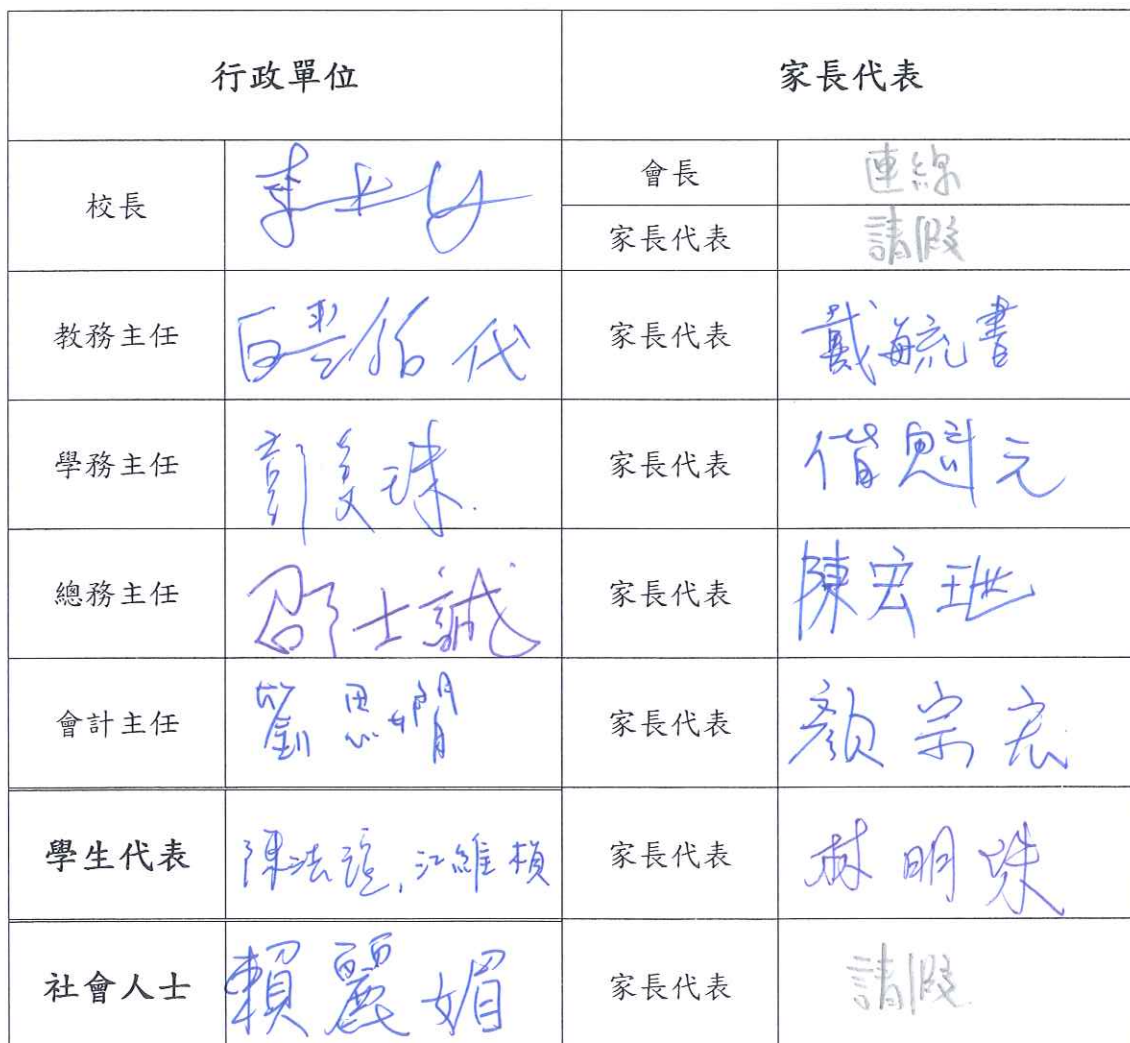 行政單位 家長代表
校長 會長 連線
家長代表 請假
教務主任 代 家長代表 戴毓書
學務主任 彭美珠 家長代表 偕魁元
總務主任 邵士誠 家長代表 陳宏
會計主任 劉思嫺 家長代表 顏宗宏
學生代表 陳法誼, 江維楨 家長代表 林明珠
社會人士 賴麗媚 家長代表 請假